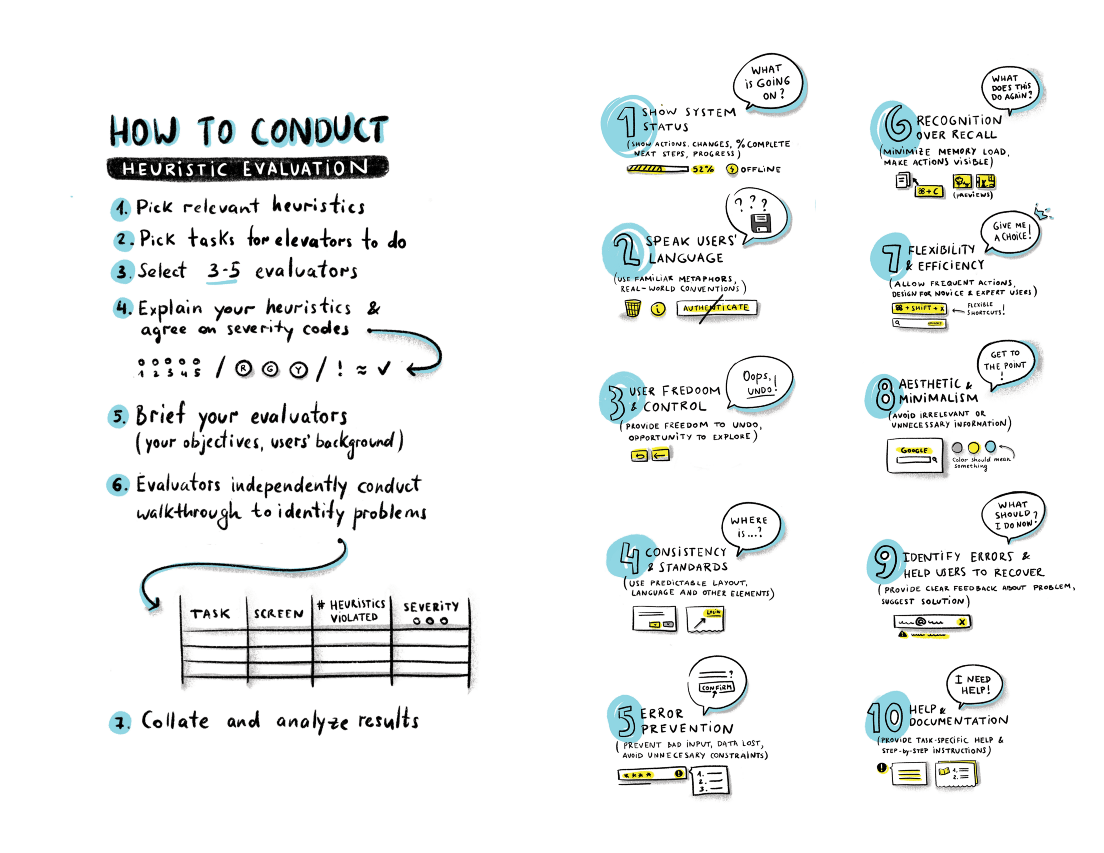 HOW TO CONDUCT
HEURISTIC EVALUATION
1. Pick relevant heuristics
2. Pick tasks for elevators to do
3. Select 3-5 evaluators
4. Explain your heuristics &
agree on severity codes
1 2 3 4 5 / R G Y / ! ≈ ✓
5. Brief your evaluators
(your objectives, users' background)
6. Evaluators independently conduct
walkthrough to identify problems
TASK
SCREEN
# HEURISTICS
VIOLATED
SEVERITY
7. Collate and analyze results
WHAT
is GOING
ON?
1 SHOW SYSTEM
STATUS
(SHOW ACTIONS, CHANGES, % COMPLETE
NEXT STEPS, PROGRESS)
52% OFFLINE
? ? ?
2 SPEAK USERS'
LANGUAGE
(USE FAMILIAR METAPHORS,
REAL-WORLD CONVENTIONS)
i AUTHENTICATE
Oops,
UNDO!
3 USER FREDOOM
& CONTROL
(PROVIDE FREEDOM TO UNDO,
OPPORTUNITY TO EXPLORE)
WHERE
is...?
4 CONSISTENCY
& STANDARDS
(USE PREDICTABLE LAYOUT,
LANGUAGE AND OTHER ELEMENTS)
LOGIN
?
CONFIRM
5 ERROR
PREVENTION
(PREVENT BAD INPUT, DATA LOST,
AVOID UNNECESARY CONSTRAINTS)
**** !
1.
2.
3.
WHAT
DOES THIS
DO AGAIN?
6 RECOGNITION
OVER RECALL
(MINIMIZE MEMORY LOAD,
MAKE ACTIONS VISIBLE)
⌘+C
(PREVIEWS)
GIVE ME
A CHOICE!
7 FLEXIBILITY
& EFFICIENCY
(ALLOW FREQUENT ACTIONS,
DESIGN FOR NOVICE & EXPERT USERS)
⌘ + SHIFT + X
FLEXIBLE
SHORTCUTS!
GET TO
THE POINT
!
8 AESTHETIC &
MINIMALISM
(AVOID IRRELEVANT OR
UNNECESSARY INFORMATION)
GOOGLE
Color should mean
something
WHAT
SHOULD
I DO NOW?
9 IDENTIFY ERRORS &
HELP USERS TO RECOVER
(PROVIDE CLEAR FEEDBACK ABOUT PROBLEM,
SUGGEST SOLUTION)
@ X
I NEED
HELP!
10 HELP &
DOCUMENTATION
(PROVIDE TASK-SPECIFIC HELP &
STEP-by-STEP INSTRUCTIONS)
!
1.
2.